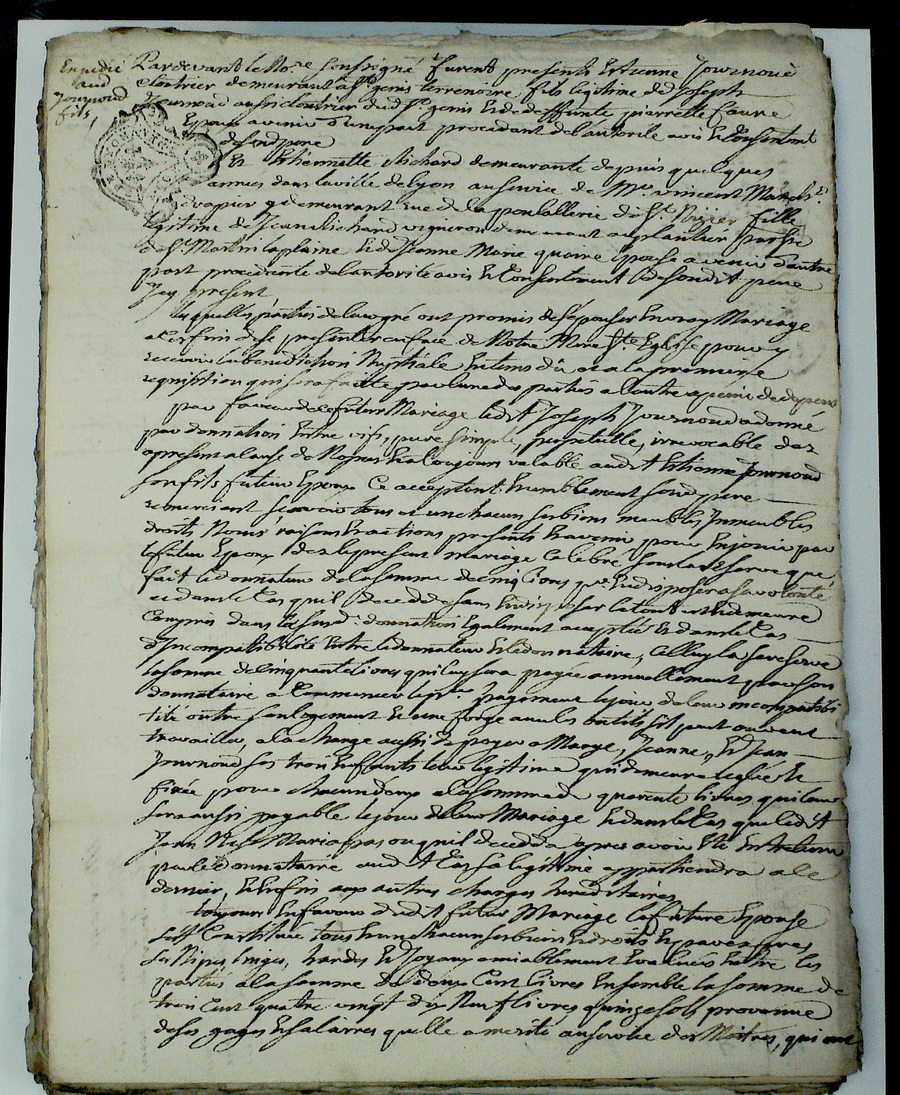 Expedié
aud
Journoud
fils
Pardevant le No.re soussigné furent presents Estienne Journoud
cloutrier demeurant a St genis terrenoire, fils legitime de Joseph
Journoud aussi cloutrier dud St genis et de deffunte pierrette faure
Epoux avenir d'une part procedant de l'autorité avis et Consentemt
de sondt pere
Et Ethiennette Richard demeurante depuis quelques
annees dans la ville de Lyon au service de Mr vincent March.d
drapier y demeurant rue de la poulallerie de St Nizier fille
legitime de Jean Richard vigneron demeurant au plantier parsse
de St Martin laplaine et de Jeanne Marie quoire Epouse avenir d'autre
part procedante de l'autorité avis et Consentement de sondit pere
Icy present
Lesquelles parties de leur gré ont promis de s'epouser en vray Mariage
a ces fins de se presenter en face de Notre Mere Ste Eglise pour y
recevoir la benediction Nuptiale en tems dû et a la premiere
requisition qui sera faitte par l'une des parties a l'autre a peine de depens
par faveur de ce futur Mariage ledit Joseph Journoud a donné
par donnation entre vifs, pure simple, perpetuelle, irrevocable des
apresent a cause de Nopces et a toujours valable audit Etienne Journoud
son fils futur Epoux Ce acceptant et humblement sondt pere
remerciant scavoir tous et un chacun ses biens meubles Immeubles
droits Noms raisons et actions presents et avenir pour En jouir par
le futur Epoux des le present mariage celebré sous la reserve que
fait le donnateur de la somme de cinq livres pr En disposer a sa volonté
et dans le Cas qu'il decedde sans En disposer la tout Et demeure
Compris dans la susd.e donnation Egalement acceptée Et dans le Cas
d'Incompatibilité Entre le donnateur Et le donnataire, Celluy la se reserve
la somme de cinquante livres qui luy sera payée annuellement par son
donnataire a Commencer le pr.er payement le jour de leur incompatibi
lité outre son logement Et une forge avec les outils
travailler, a la charge aussi de payer a Marge, Jeanne, Et Jean
Journoud ses trois Enffants leur legitime qui demeure reglée Et
fixée pour chacun d'eux a la somme de quarente livres qui leur
sera aussi payable le jour de leur Mariage Et dans le Cas que ledit
Jean Ne se Maria pas ou qu'il decedda apres avoir Eté Entretenu
par le donnataire audit Cas sa legitime appartiendra a le
dernier, Et Enfin aux autres charges hereditaires
toujours En faveur dudit futur Mariage la future Epouse
se Constitue tous Et un chacun ses biens Et droits Et par expres
ses Nipes, linges, hardes Et Joyaux amiablement Evalués Entre les
parties a la somme de deux Cent livres Ensemble la somme de
trois Cent quatre vingt dix Neuf livres quinze sols provenue
de ses gages Et salaires qu'elle a merité au service des Maitres, qui ont